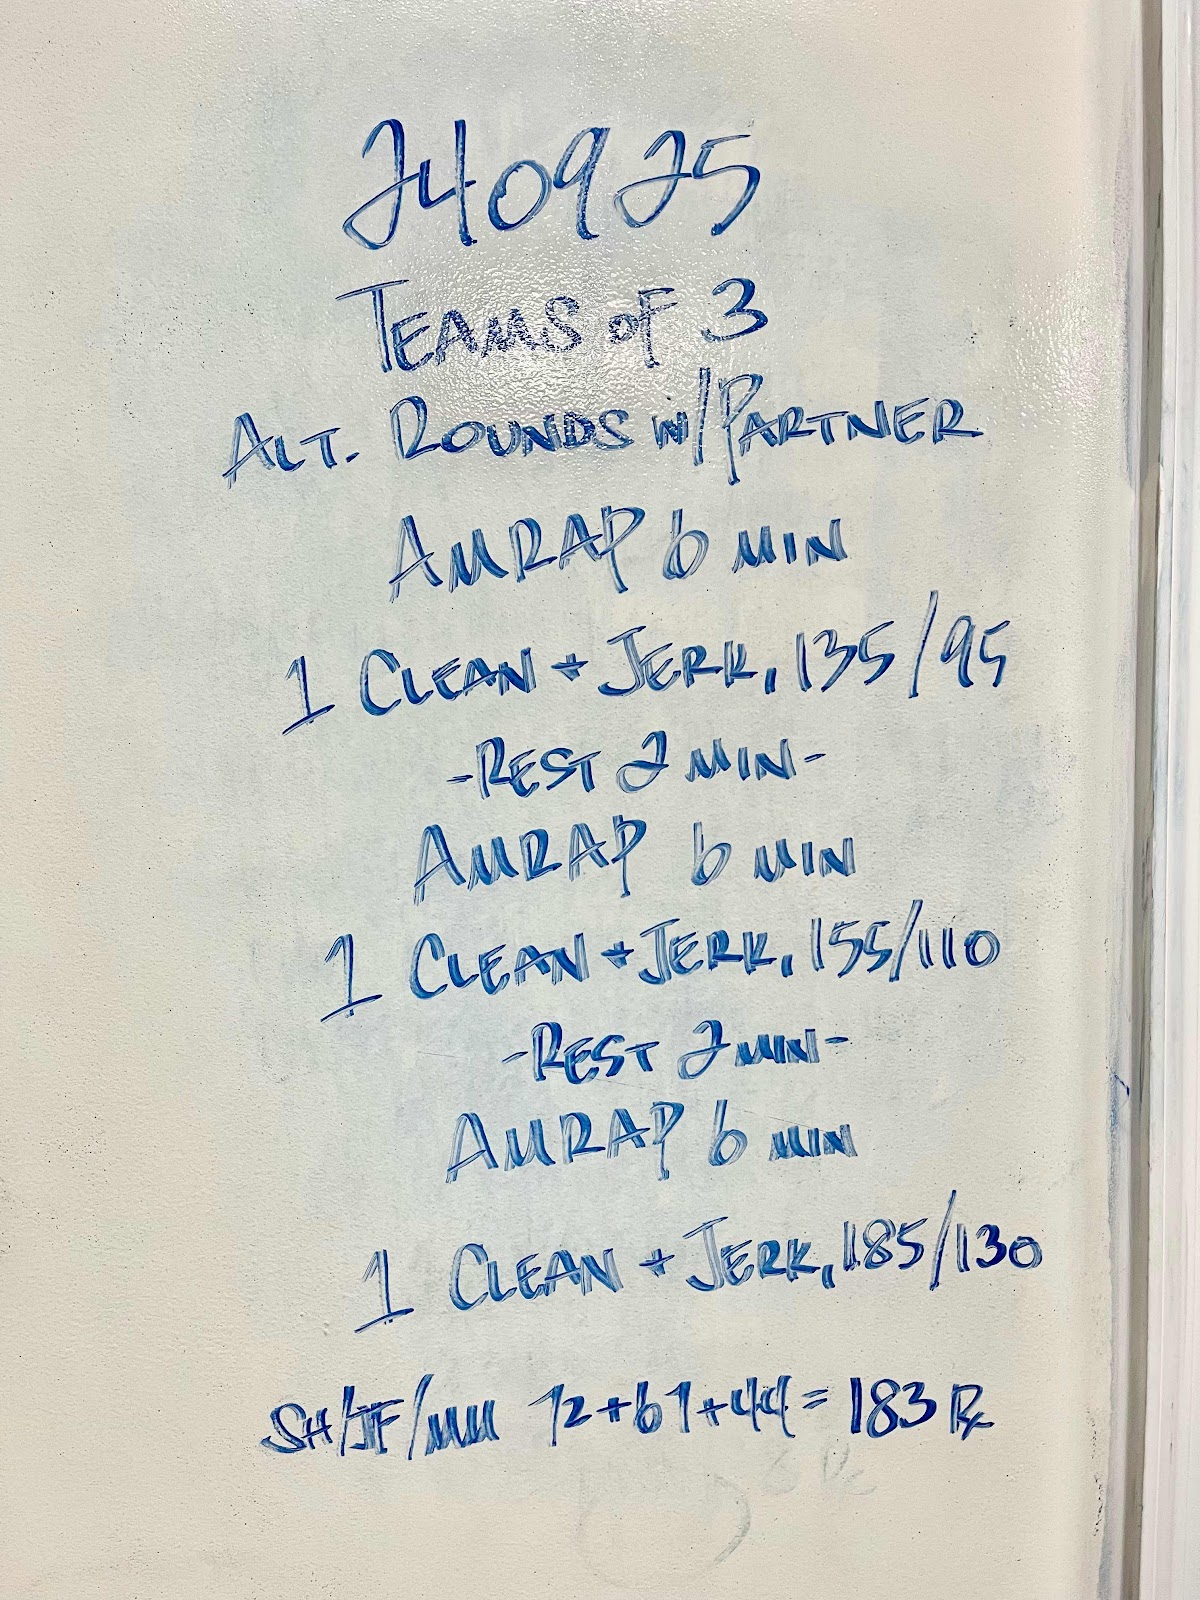 240925
TEAMS OF 3
ALT. ROUNDS W/PARTNER
AMRAP 6 MIN
1 CLEAN + JERK, 135/95
-REST 2 MIN-
AMRAP 6 MIN
1 CLEAN + JERK, 155/110
-REST 2 MIN-
AMRAP 6 MIN
1 CLEAN + JERK, 185/130
SH/JF/MM 72+67+44=183 Rx